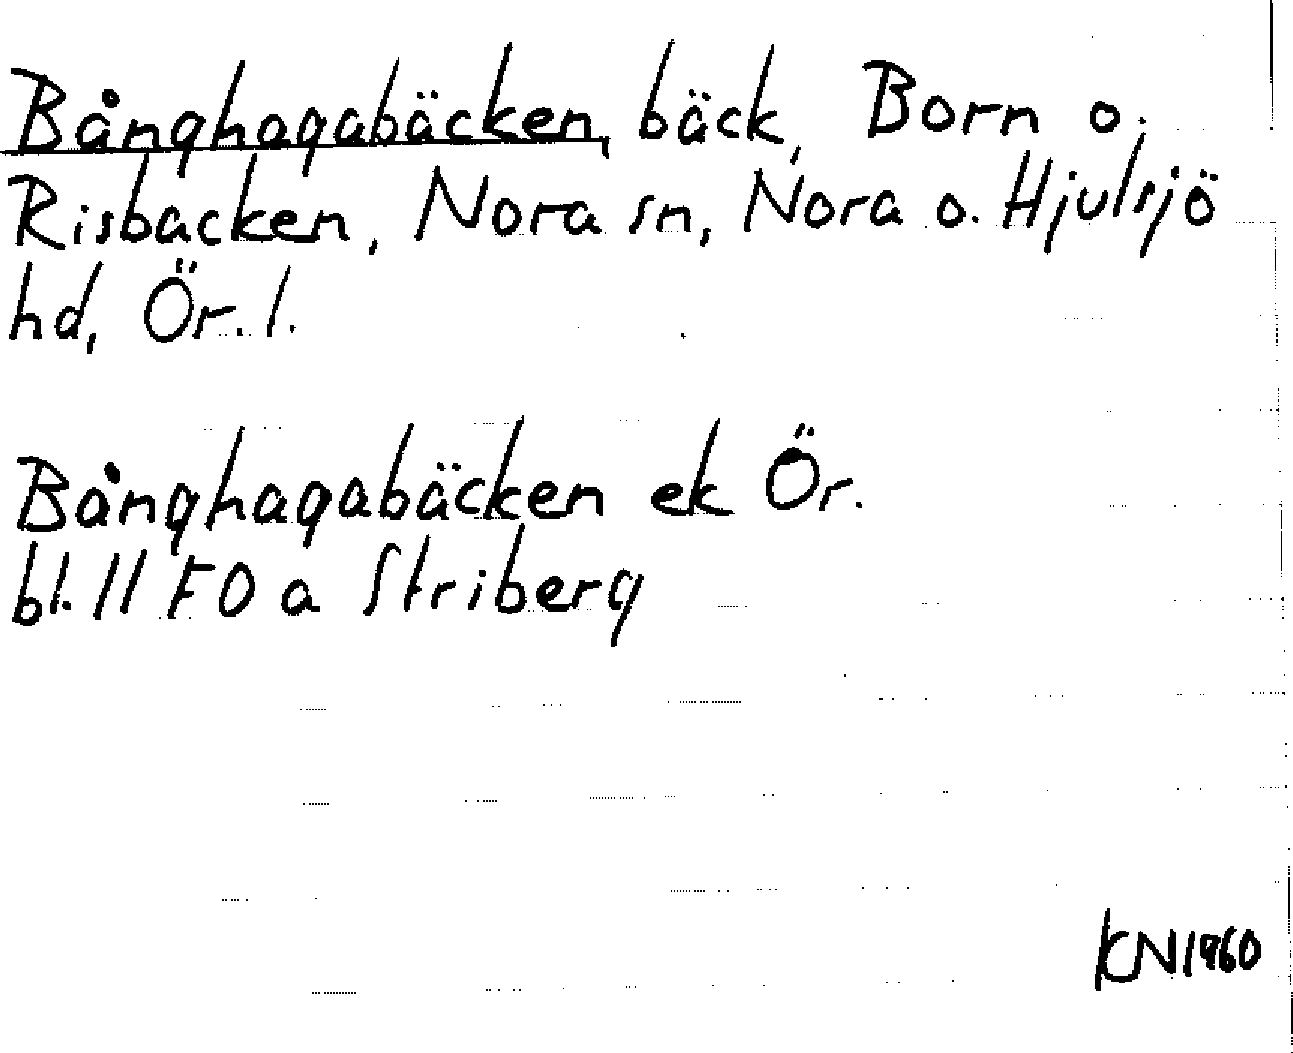 Bånghagabäcken, bäck, Born o.
Risbacken, Nora sn, Nora o. Hjulsjö
hd, Ör. l.
Bånghagabäcken ek Ör.
bl. 11 FO a Striberg
KN 1960